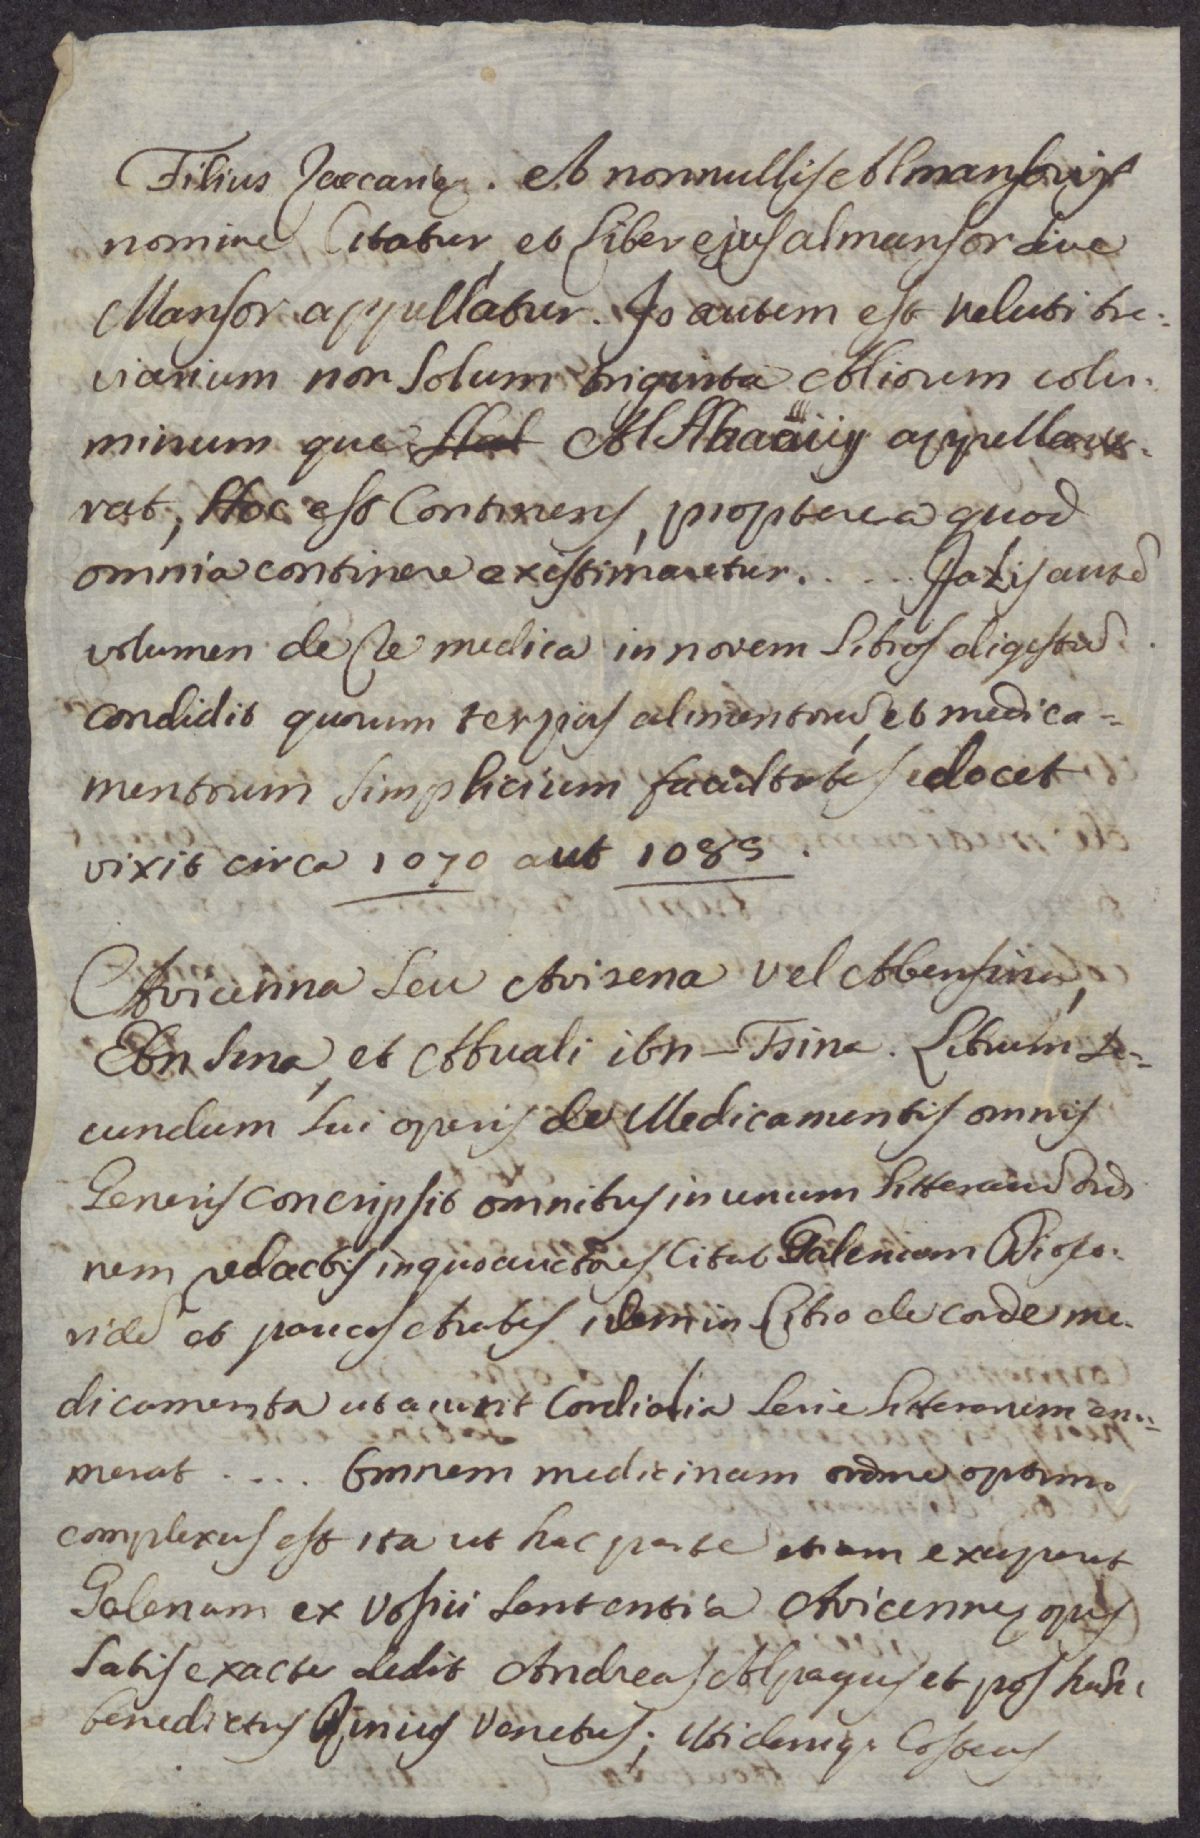 Filius Zaccariæ. A nonnullis Almansoris
nomine Citatur et Liber ejus almansor sive
Mansor appellatur. Is autem est veluti bre:
viarium non solum triginta Aliorum volu.
minum que Al Hhaauij appellave.
rat, Hoc est Continens, propterea quod
omnia continere existimaretur. . . . . Razis autē
volumen de Re medica in novem Libros digestū
condidit quorum terpius alimentorū et medica=
mentorum simplicium facultates docet
vixit circa 1070 aut 1085.
Avicenna seu Avizena vel Abensina,
Ebn sina, et Abuali ibn–Tsina. Librum se=
cundum sui operis de Medicamentis omnis
Generis concripsit omnibus in unum litterarū ordi
nem redactis in quo auctores Citat Galenum Dioso.
ridē et paucos Arabes idem in Libro de corde me.
dicamenta ut aiunt Cordialia serie litterarum enu=
merat . . . . Omnem medicinam ordine optimo
complexus est ita ut hac parte etiam exuperet
Galenum ex Vossii sententia Avicennæ opus
satis exacte dedit Andreas Alpagus et pos hunc
benedictus Rinius Venetus; Costeus